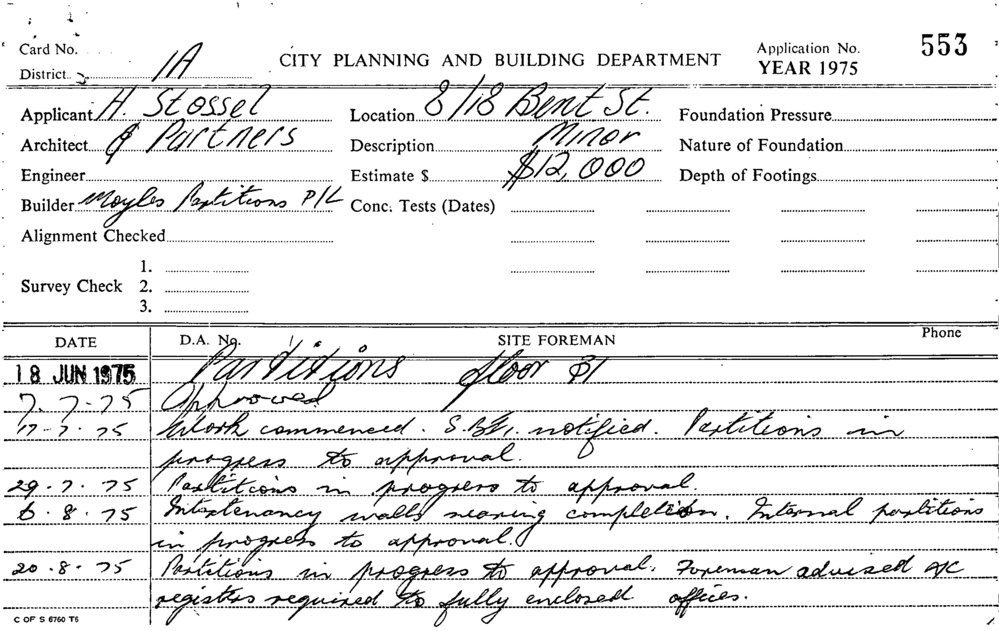 Card No.
District 1A
CITY PLANNING AND BUILDING DEPARTMENT
Application No. 553
YEAR 1975
Applicant H. Stossel
Location 8/18 Bent St.
Foundation Pressure
Architect & Partners
Description Minor
Nature of Foundation
Engineer
Estimate $ $12,000
Depth of Footings
Builder Moyles Partitions P/L
Conc. Tests (Dates)
Alignment Checked
1.
Survey Check 2.
3.
DATE D.A. No. SITE FOREMAN Phone
18 JUN 1975 Partitions floor
7.7.75 Approved
17.7.75 Work commenced. notified. Partitions in
progress to approval.
29.7.75 Partitions in progress to approval.
6.8.75 Intertenancy walls nearing completion. Internal partitions
in progress to approval.
20.8.75 Partitions in progress to approval. Foreman advised
registers required to fully enclosed offices.
C OF S 6760 T6